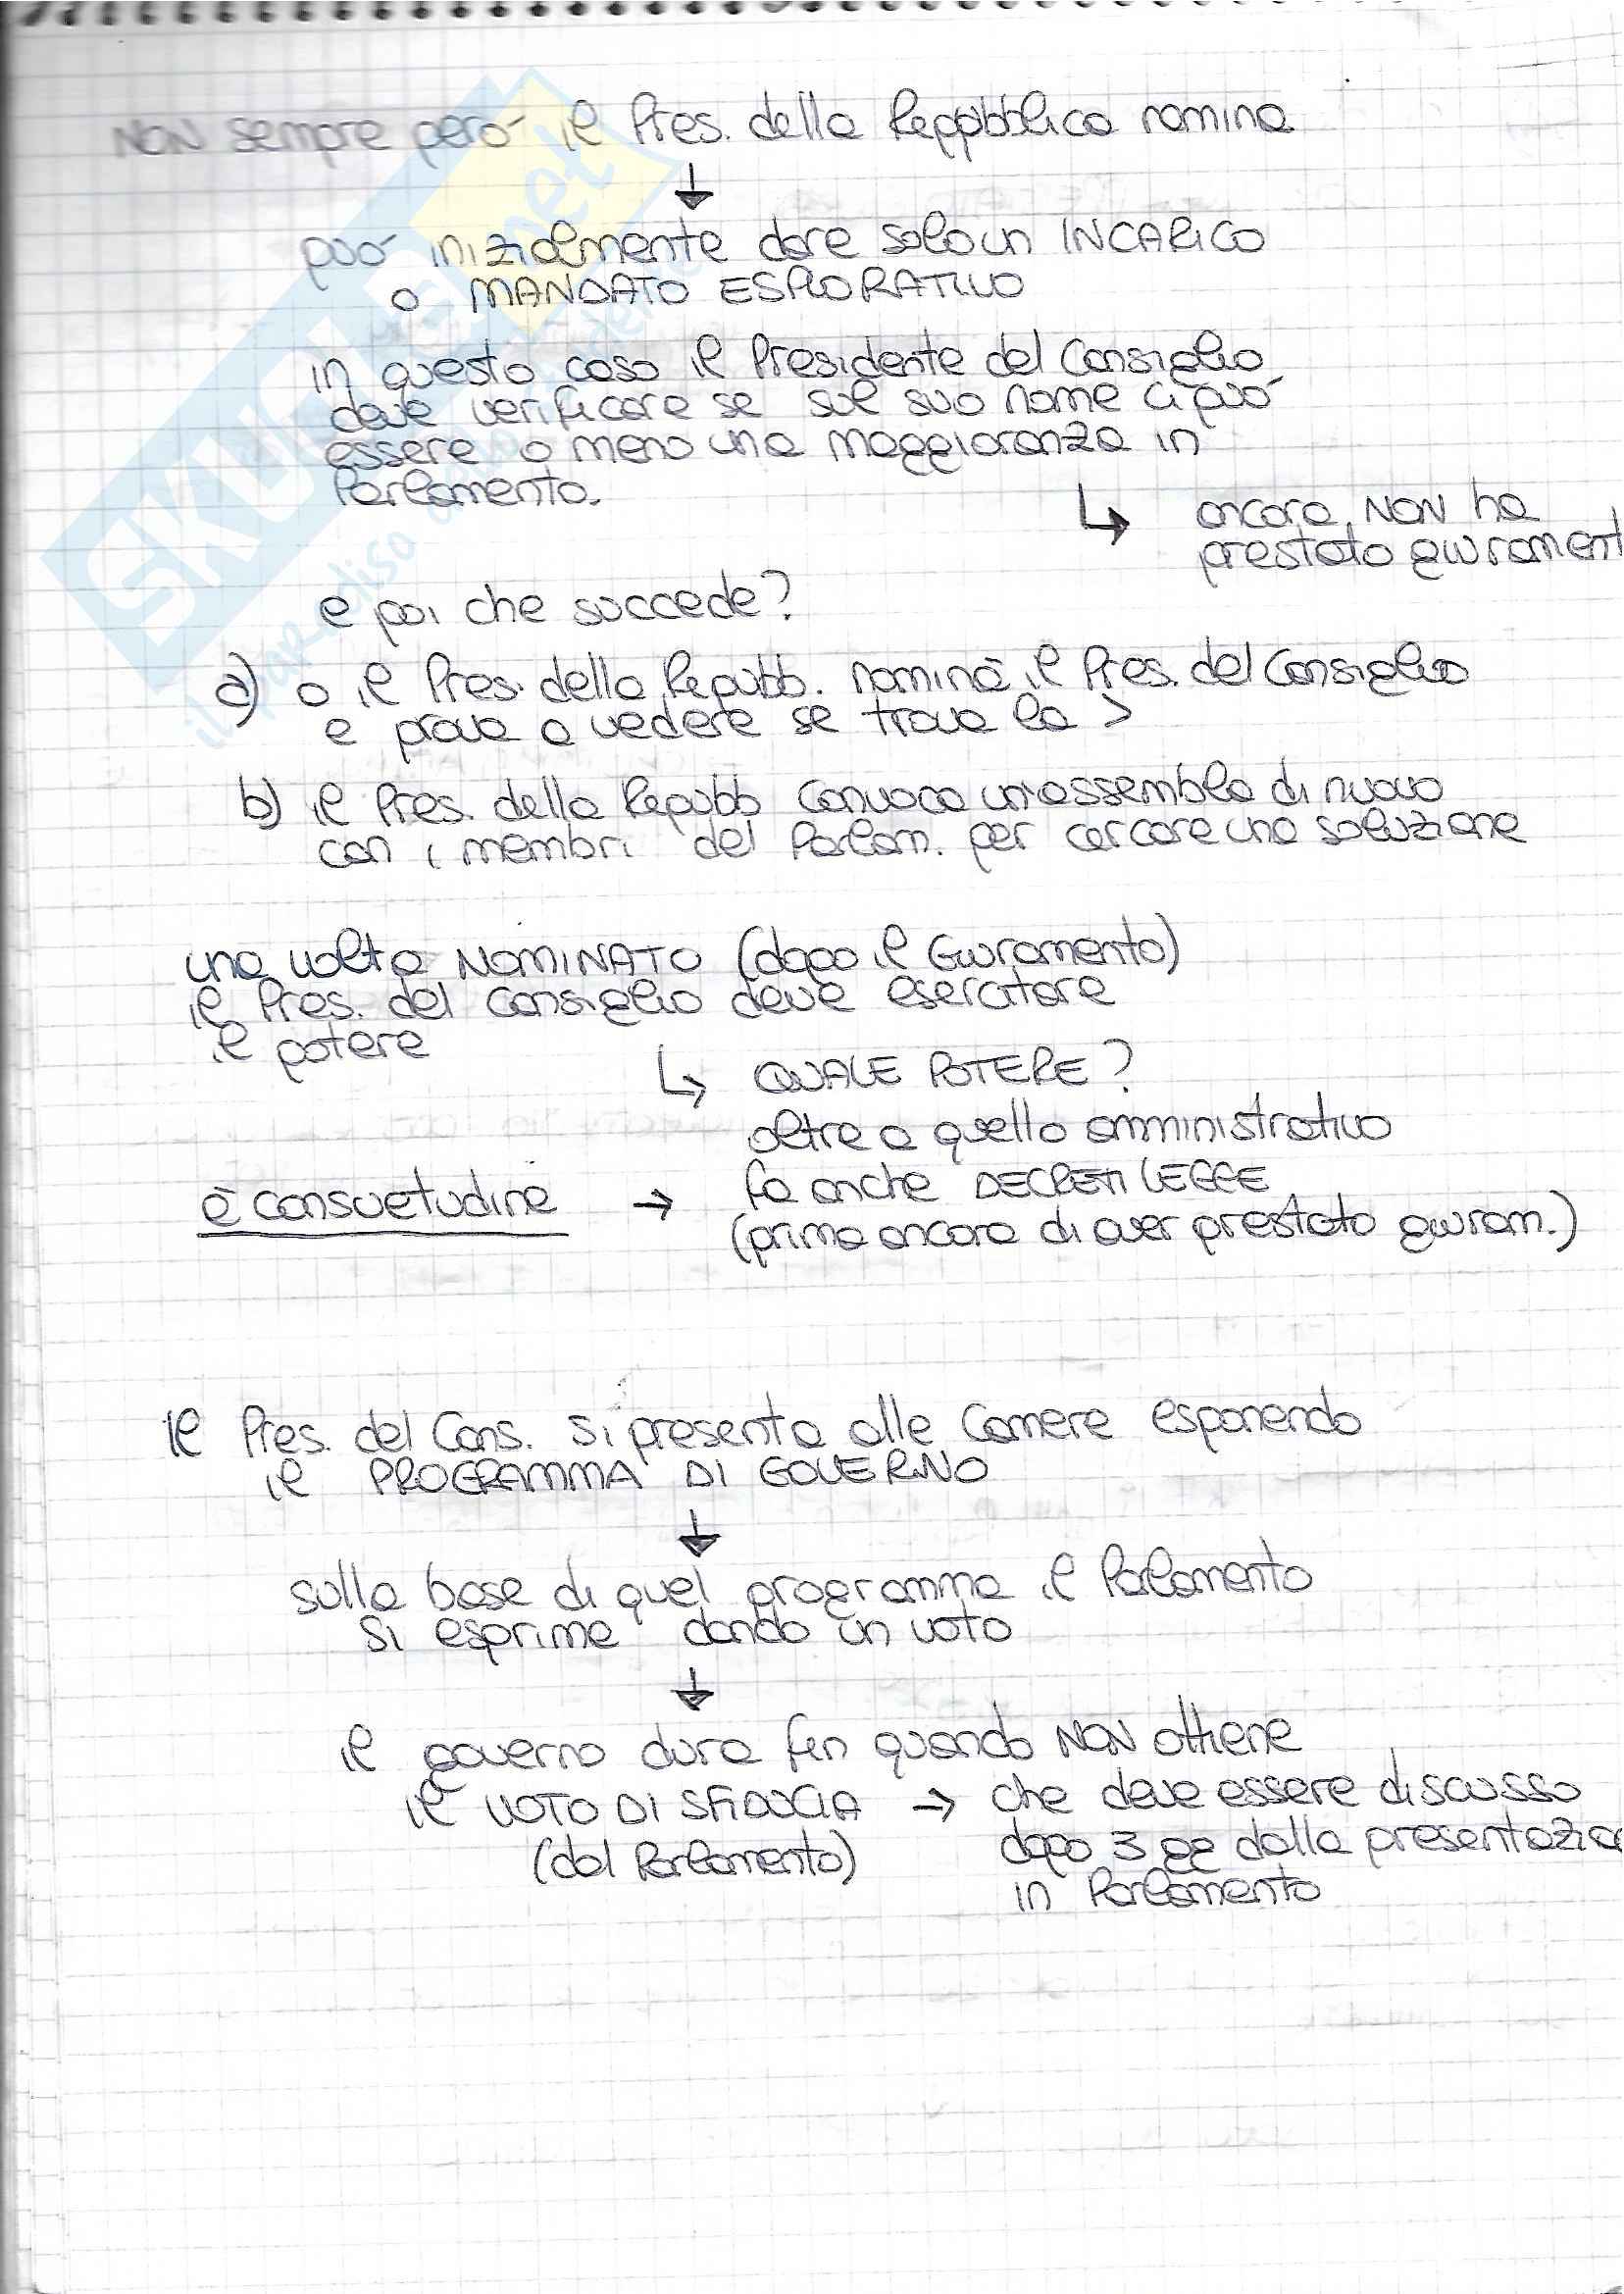 NON sempre però il Pres. della Reppubblica nomina
↓
può inizialmente dare solo un INCARICO
o MANDATO ESPLORATIVO
in questo caso il Presidente del Consiglio
deve verificare se sul suo nome ci può
essere o meno una maggioranza in
Parlamento.
↳ ancora NON ha
prestato giurament
e poi che succede?
a) o il Pres. della Repubb. nomina il Pres. del Consiglio
e prova a vedere se trova la >
b) il Pres. della Repubb convoca un'assemblea di nuovo
con i membri del Parlam. per cercare una soluzione
una volta NOMINATO (dopo il Giuramento)
il Pres. del Consiglio deve esercitare
il potere
↳ QUALE POTERE?
oltre a quello amministrativo
è consuetudine → fa anche DECRETI LEGGE
(prima ancora di aver prestato giuram.)
Il Pres. del Cons. si presenta alle Camere esponendo
il PROGRAMMA DI GOVERNO
↓
sulla base di quel programma il Parlamento
si esprime dando un voto
↓
il governo dura fin quando NON ottiene
il VOTO DI SFIDUCIA → che deve essere discusso
(dal Parlamento) dopo 3 gg dalla presentazion
in Parlamento
SKUOLA.net
il paradiso dello studente